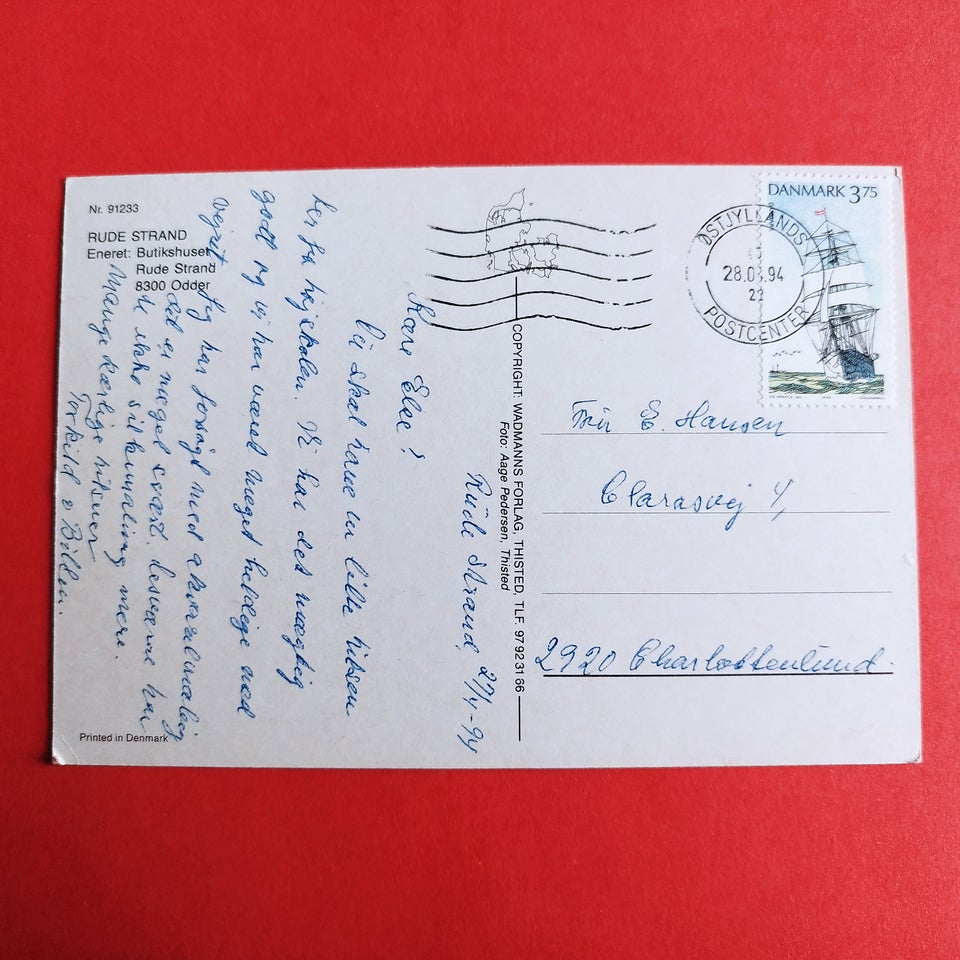 Nr. 91233
RUDE STRAND
Eneret: Butikshuset
Rude Strand
8300 Odder
Rude Strand, 27/4-94
Kære Else!
Vi skal have en lille hilsen
her fra højskolen. Vi har det mægtig
godt og vi har været meget heldige med
vejret.
Jeg har forsøgt med akvarelmaling
det er meget svært. Desværre har
de ikke silkemaling mere.
Mange kærlige hilsner
Torkild &
Printed in Denmark
COPYRIGHT: WADMANNS FORLAG, THISTED, TLF. 97 92 31 66
Foto: Aage Pedersen, Thisted
DANMARK 3.75
ØSTJYLLANDS
28.04.94
22
POSTCENTER
Fru E. Hansen
Clarasvej 4,
2920 Charlottenlund.